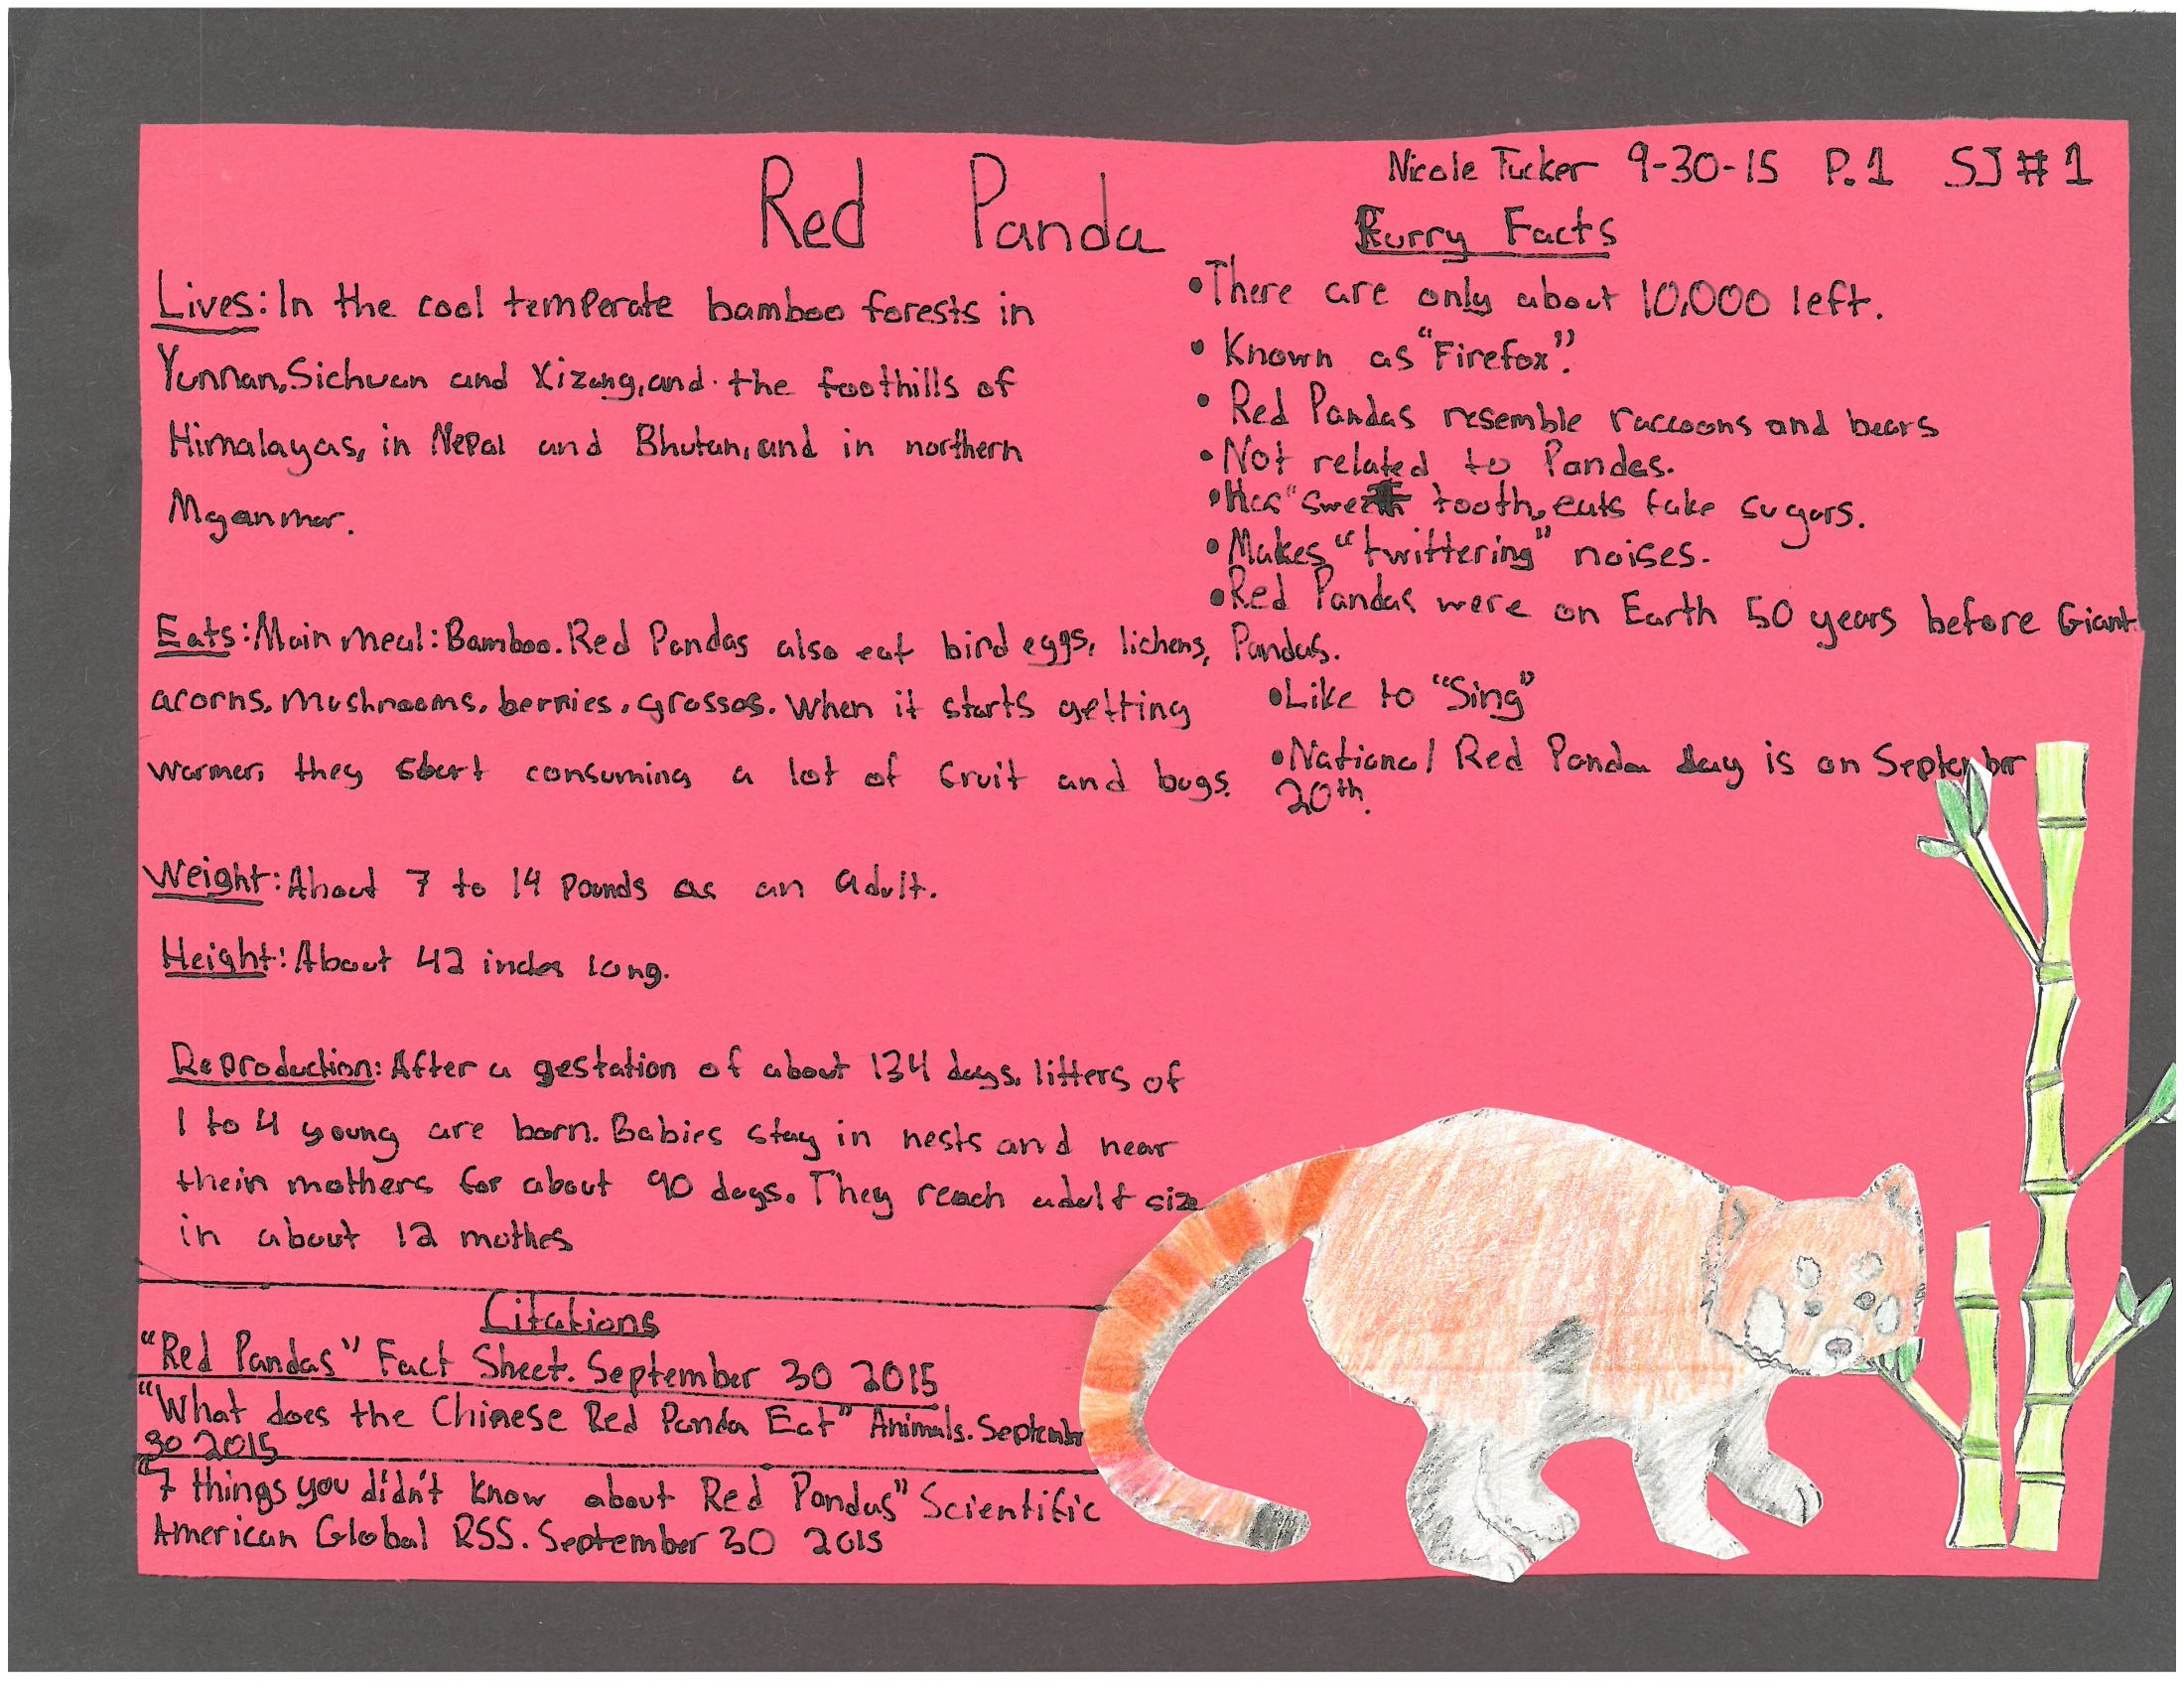 Nicole Tucker 9-30-15 P.1 SJ #1
Red Panda
Lives: In the cool temperate bamboo forests in
Yunnan, Sichuan and Xizang, and the foothills of
Himalayas, in Nepal and Bhutan, and in northern
Myanmar.
Eats: Main meal: Bamboo. Red Pandas also eat bird eggs, lichens,
acorns, mushrooms, berries, grasses. When it starts getting
warmer, they start consuming a lot of fruit and bugs.
Weight: About 7 to 14 pounds as an adult.
Height: About 42 inches long.
Reproduction: After a gestation of about 134 days, litters of
1 to 4 young are born. Babies stay in nests and near
their mothers for about 90 days. They reach adult size
in about 12 mothes
Furry Facts
• There are only about 10,000 left.
• Known as "Firefox".
• Red Pandas resemble raccoons and bears
• Not related to Pandas.
• Has "sweet tooth, eats fake sugars.
• Makes "twittering" noises.
• Red Pandas were on Earth 50 years before Giant
Pandas.
• Like to "Sing"
• National Red Panda day is on September
20th.
Citations
"Red Pandas" Fact Sheet. September 30 2015
"What does the Chinese Red Panda Eat" Animals. September
30 2015
"7 things you didn't know about Red Pandas" Scientific
American Global RSS. September 30 2015